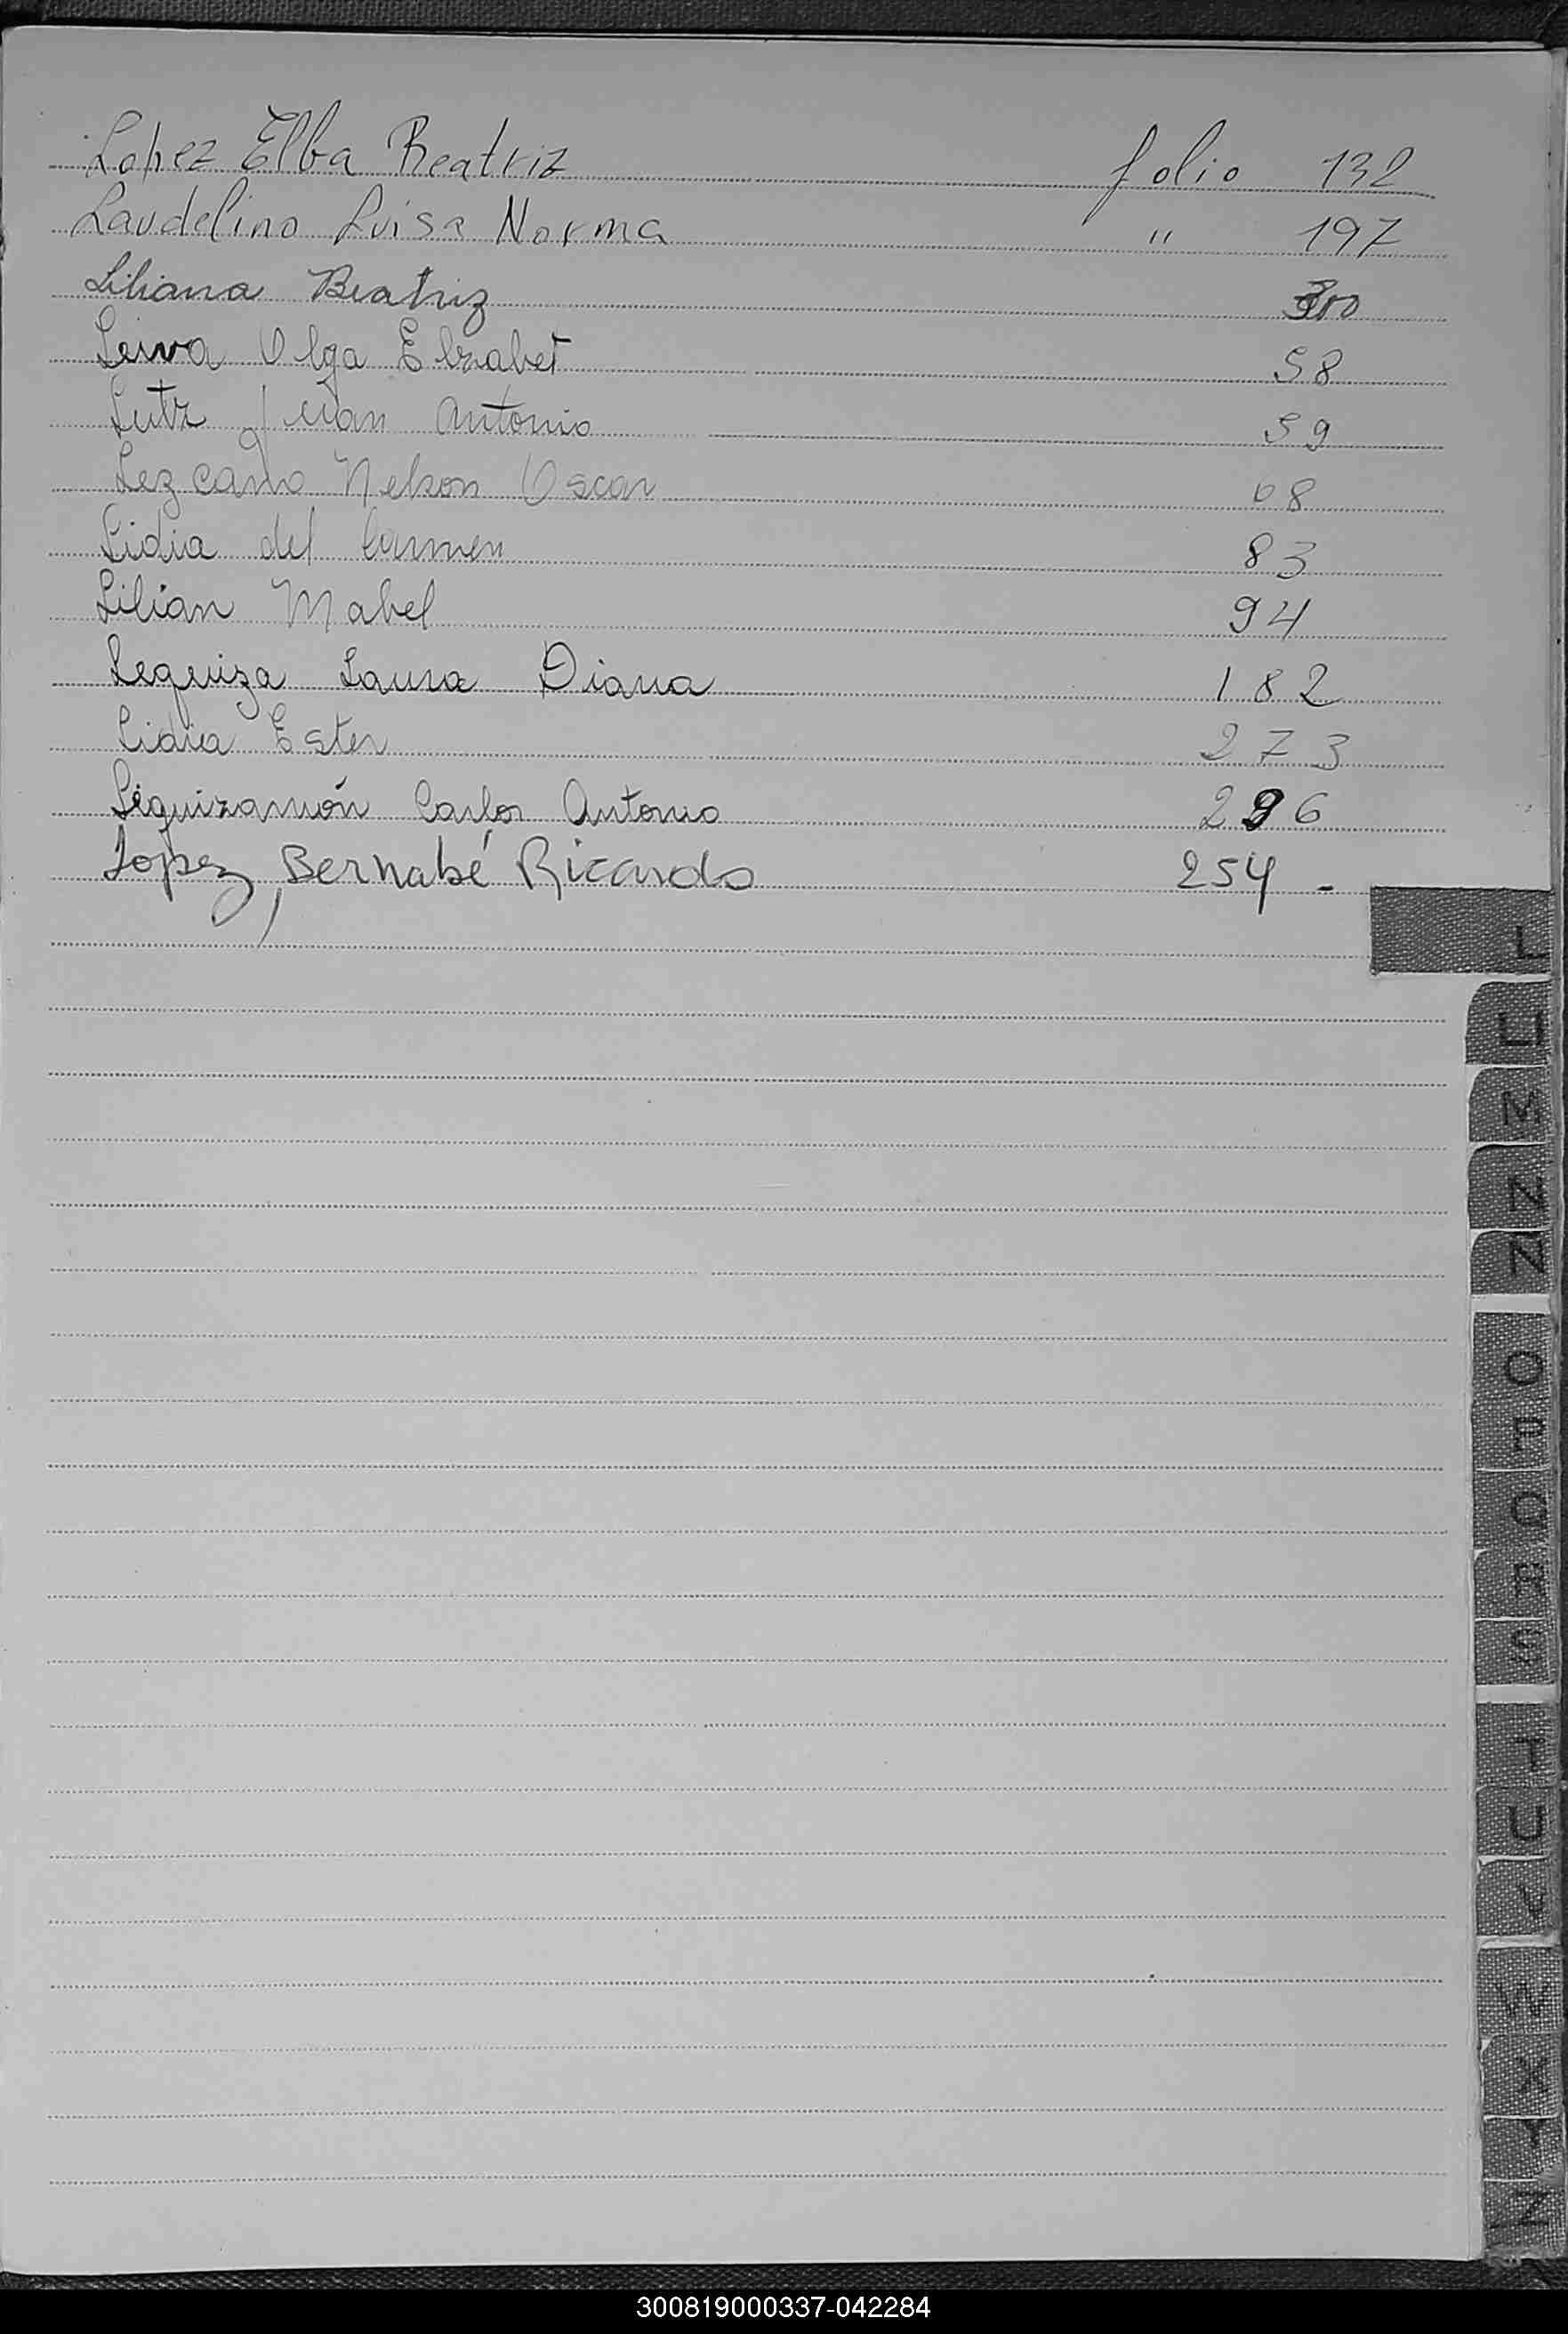 Lopez Elba Beatriz folio 132
Laudelino Luisa Norma " 197
Liliana Beatriz 300
Leiva Olga Elizabet 58
Lutz Juan Antonio 59
Lezcano Nelson Oscar 68
Lidia del Carmen 83
Lilian Mabel 94
Lequiza Laura Diana 182
Lidia Ester 273
Leguizamón Carlos Antonio 296
Lopez, Bernabé Ricardo 254 -
L
LL
M
N
Ñ
O
P
Q
R
S
T
U
V
W
X
Y
Z
300819000337-042284